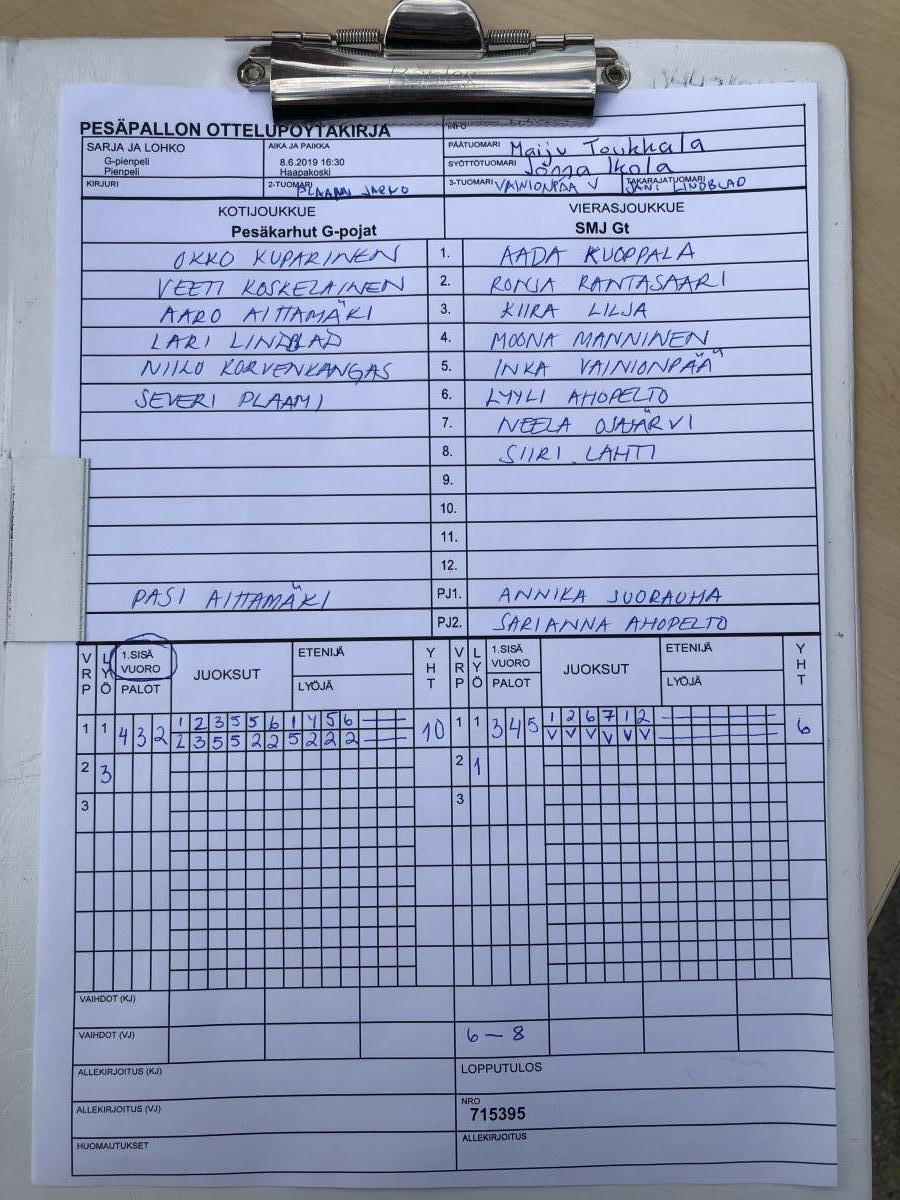 PESÄPALLON OTTELUPÖYTÄKIRJA
INFO
SARJA JA LOHKO
G-pienpeli
Pienpeli
AIKA JA PAIKKA
8.6.2019 16:30
Haapakoski
PÄÄTUOMARI Maiju Toukkala
SYÖTTÖTUOMARI Jonna Ikola
KIRJURI
2-TUOMARI PLAAMI JARKO
3-TUOMARI VAINIONPÄÄ V
TAKARAJATUOMARI JANI LINDBLAD
KOTIJOUKKUE
Pesäkarhut G-pojat
VIERASJOUKKUE
SMJ Gt
OKKO KUPARINEN 1. AADA KUOPPALA
VEETI KOSKELAINEN 2. RONJA RANTASAARI
AARO AITTAMÄKI 3. KIIRA LILJA
LARI LINDBLAD 4. MOONA MANNINEN
NIILO KORVENKANGAS 5. INKA VAINIONPÄÄ
SEVERI PLAAMI 6. LYYLI AHOPELTO
7. NEELA OJAJÄRVI
8. SIIRI LAHTI
9.
10.
11.
12.
PASI AITTAMÄKI PJ1. ANNIKA SUORAUHA
PJ2. SARIANNA AHOPELTO
VRP LYÖ 1.SISÄ VUORO PALOT JUOKSUT ETENIJÄ LYÖJÄ YHT VRP LYÖ 1.SISÄ VUORO PALOT JUOKSUT ETENIJÄ LYÖJÄ YHT
1 1 4 3 2 1 2 3 5 5 6 1 4 5 6 10 1 1 3 4 5 1 2 6 7 1 2 6
2 3 5 5 2 2 5 2 2 2 V V V V V V
2 3 2 1
3 3
VAIHDOT (KJ)
VAIHDOT (VJ) 6 – 8
ALLEKIRJOITUS (KJ)
LOPPUTULOS
ALLEKIRJOITUS (VJ)
NRO
715395
HUOMAUTUKSET
ALLEKIRJOITUS